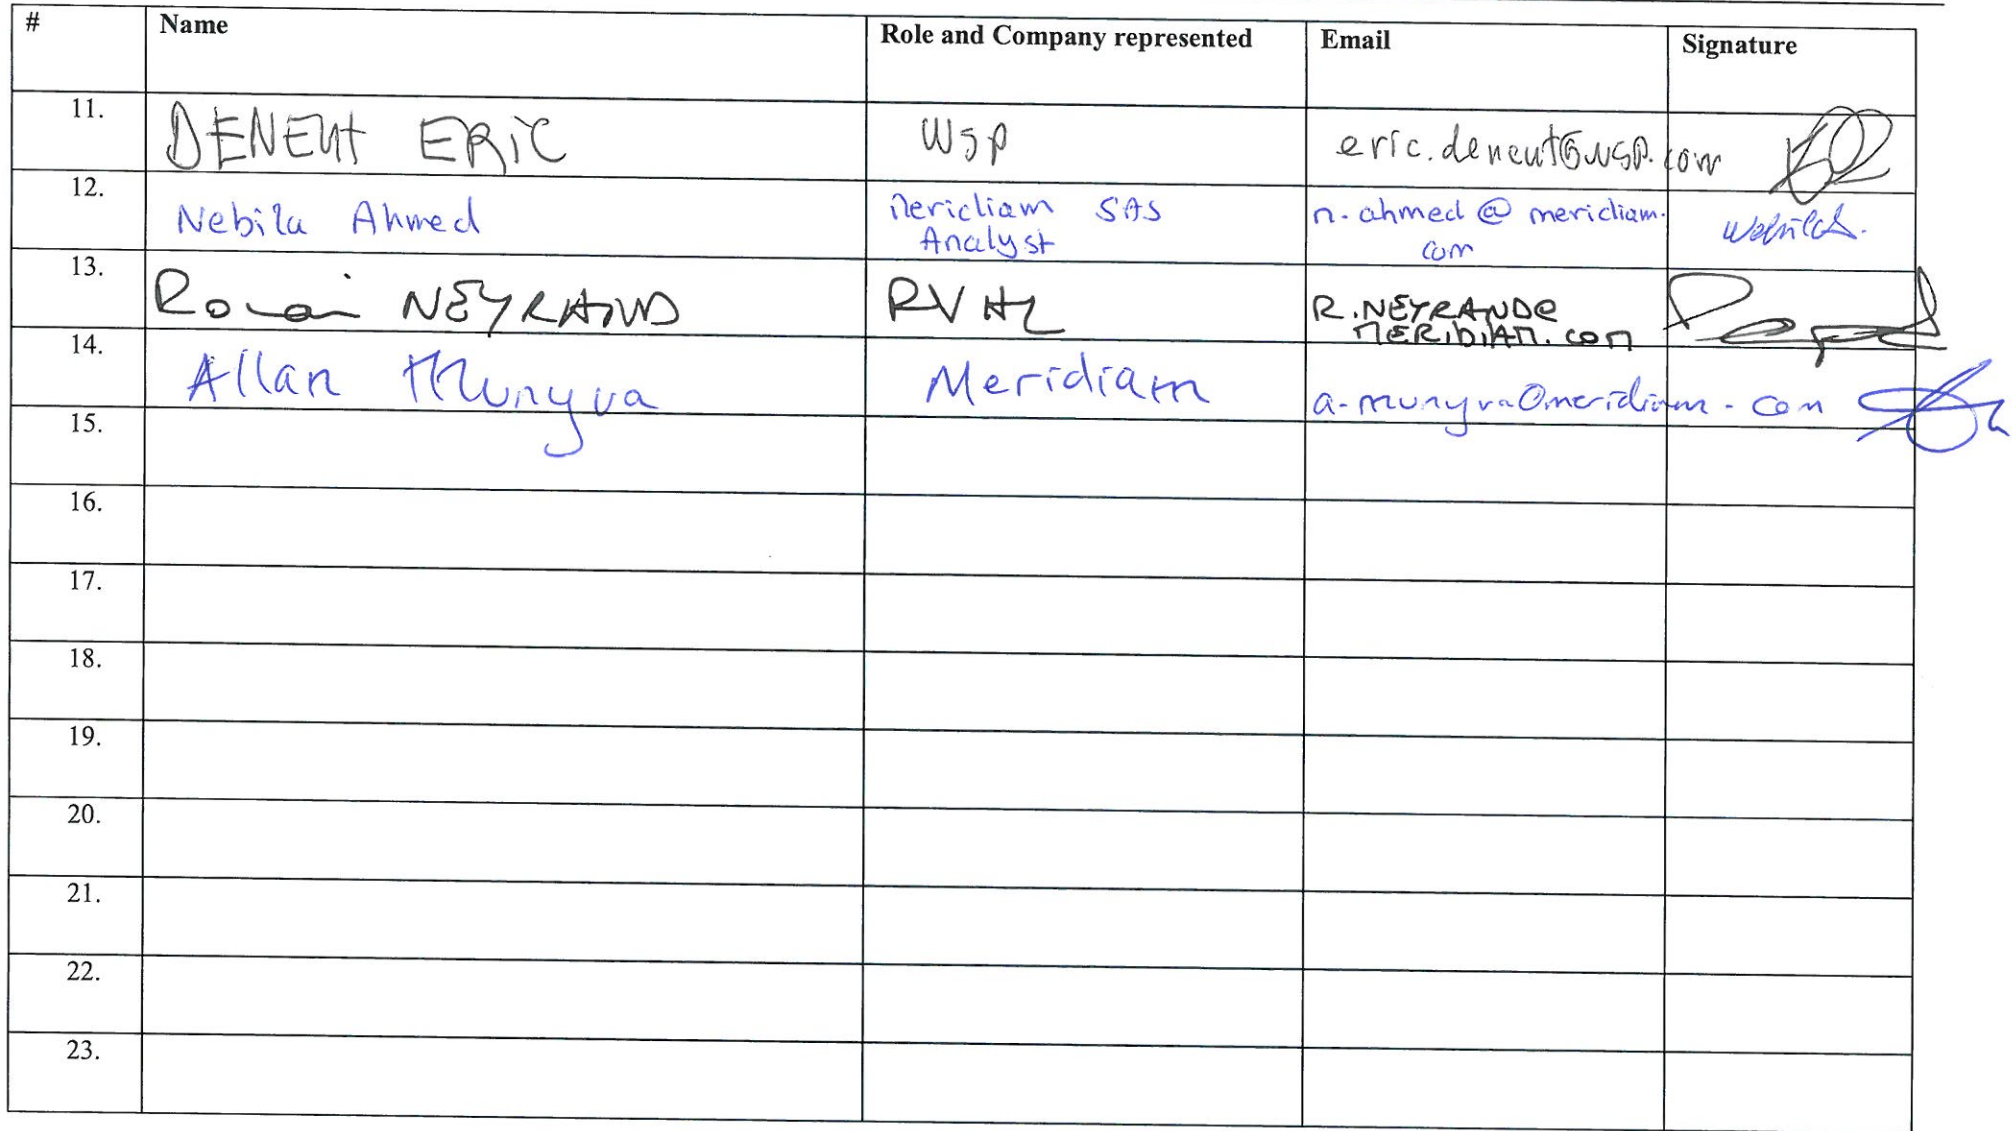 # Name Role and Company represented Email Signature
11. DENEUT ERIC WSP eric.deneut@wsp.com
12. Nebila Ahmed Meridiam SAS n.ahmed@meridiam.
Analyst com
13. Romain NEYRAND RVHL R.NEYRAND@
MERIDIAM.com
14. Allan Munyva Meridiam a.munyva@meridiam.com
15.
16.
17.
18.
19.
20.
21.
22.
23.